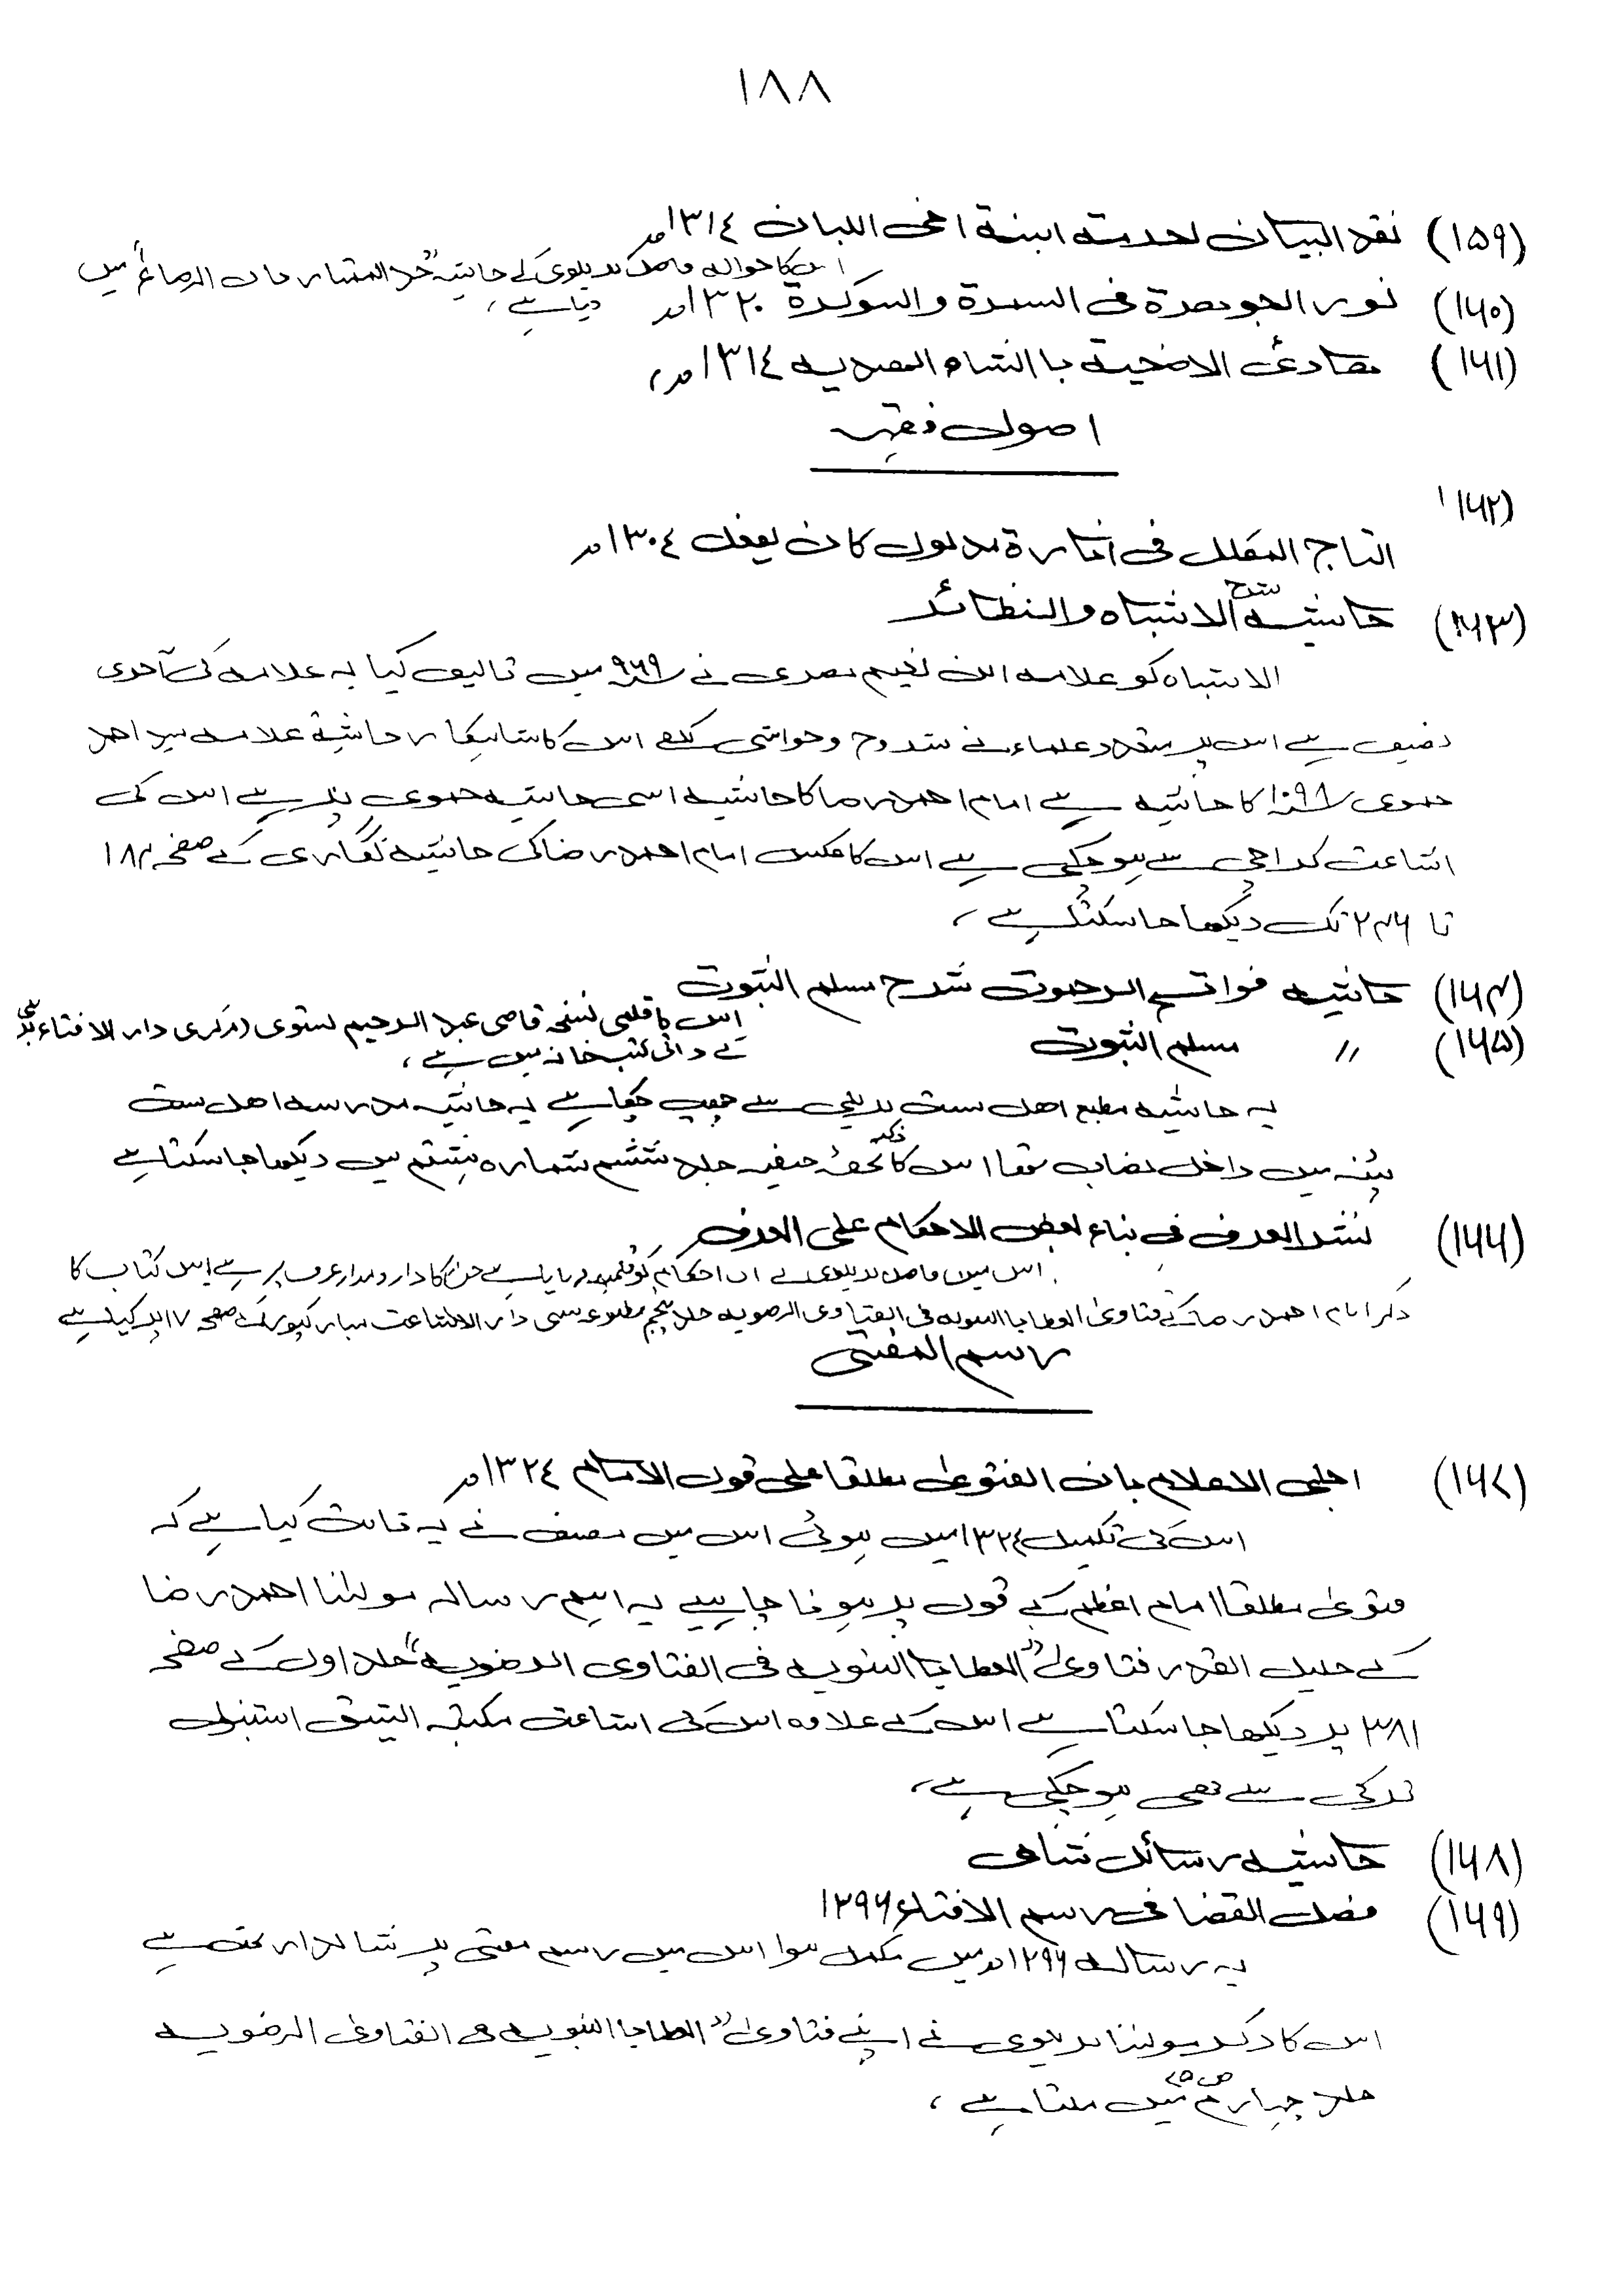 ۱۸۸
(۱۵۹) نقد البیان لحرمۃ ابنۃ اخی اللبان ۱۳۱٤ھ
اس کا حوالہ فاضل بریلوی کے حاشیہ "جد الممتار باب الرضاع" میں
(۱۶۰) نور الجوھرۃ فی السمرۃ والسوکرۃ ۱۳۲۰ھ دیا ہے،
(۱۶۱) ھادی الاضحیۃ با الشاہ الھندیہ ۱۳۱٤ھ،
اصول فقہ
(۱۶۲)
التاج المکلل فی انارۃ مدلول کان یفعل ۱۳۰٤ھ
(۱۶۳) حاشیہ شرح الاشباہ والنظائر
الاشباہ کو علامہ ابن نجیم مصری نے ۹۶۹ میں تالیف کیا یہ علامہ کی آخری
تصنیف ہے اس پر متعدد علماء نے شروح و حواشی لکھے اس کا شاہکار حاشیۃ علامہ سید احمد
حموی ۱۰۹۸ کا حاشیہ ہے امام احمد رضا کا حاشیہ اسی حاشیہ حموی پر ہے اس کی
اشاعت کراچی سے ہو چکی ہے اس کا عکس امام احمد رضا کی حاشیہ نگاری کے صفحہ ۱۸۴
تا ۲۴۶ تک دیکھا جا سکتا ہے،
(۱۶۴) حاشیہ فواتح الرحموت شرح مسلم الثبوت
اس کا قلمی نسخہ قاضی عبد الرحیم بستوی (مرکزی دار الافتاء بریلی)
(۱۶۵) " مسلم الثبوت
کے ذاتی کتبخانہ میں ہے،
یہ حاشیہ مطبع اھل سنت بریلی سے چھپ چکا ہے یہ حاشیہ مدرسہ اھل سنت
پٹنہ میں داخل نصاب تھا اس کا ذکر تحفۂ حنفیہ جلد ششم شمارہ ہشتم میں دیکھا جا سکتا ہے
(۱۶۶) نشر العرف فی بناء بعض الاحکام علی العرف
اس میں فاضل بریلوی نے ان احکام کو قلمبند فرمایا ہے جن کا دارومدار عرف پر ہے اس کتاب کا
ذکر امام احمد رضا کے فتاوی العطایا النبویہ فی الفتاوی الرضویہ جلد پنجم مطبوعہ سنی دار الاشاعت مبارکپور کے صفحہ ۱۷ پر کیا ہے
رسم المفتی
(۱۶۷) اجلی الاعلام بان الفتوی مطلقا علی قول الامام ۱۳۲٤ھ
اس کی تکمیل ۱۳۲٤ میں ہوئی اس میں مصنف نے یہ ثابت کیا ہے کہ
فتوی مطلقا امام اعظم کے قول پر ہونا چاہیے یہ اہم رسالہ مولنا احمد رضا
کے جلیل القدر فتاوی "العطایا النبویہ فی الفتاوی الرضویہ" جلد اول کے صفحہ
۳۸۱ پر دیکھا جا سکتا ہے اس کے علاوہ اس کی اشاعت مکتبہ الیشق استنبول
ترکی سے بھی ہو چکی ہے،
(۱۶۸) حاشیہ رسائل شامی
(۱۶۹) فصل القضا فی رسم الافتاء ۱۲۹۶
یہ رسالہ ۱۲۹۶ھ میں مکمل ہوا اس میں رسم مفتی پر شاندار بحث ہے
اس کا ذکر مولنا بریلوی نے اپنے فتاوی "العطایا النبویہ فی الفتاوی الرضویہ
جلد چہارم ص ۵۷ میں ملتا ہے،